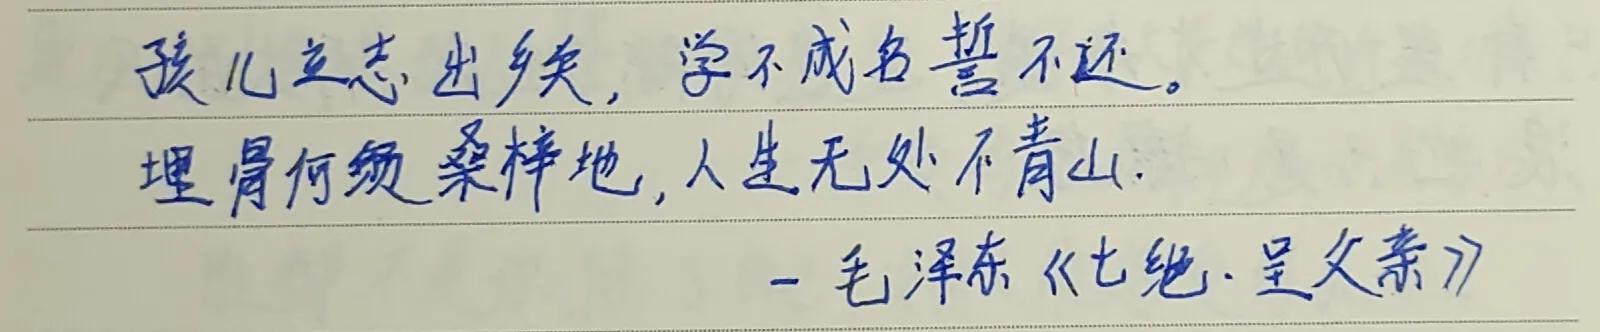 孩儿立志出乡关，学不成名誓不还。
埋骨何须桑梓地，人生无处不青山.
- 毛泽东《七绝·呈父亲》